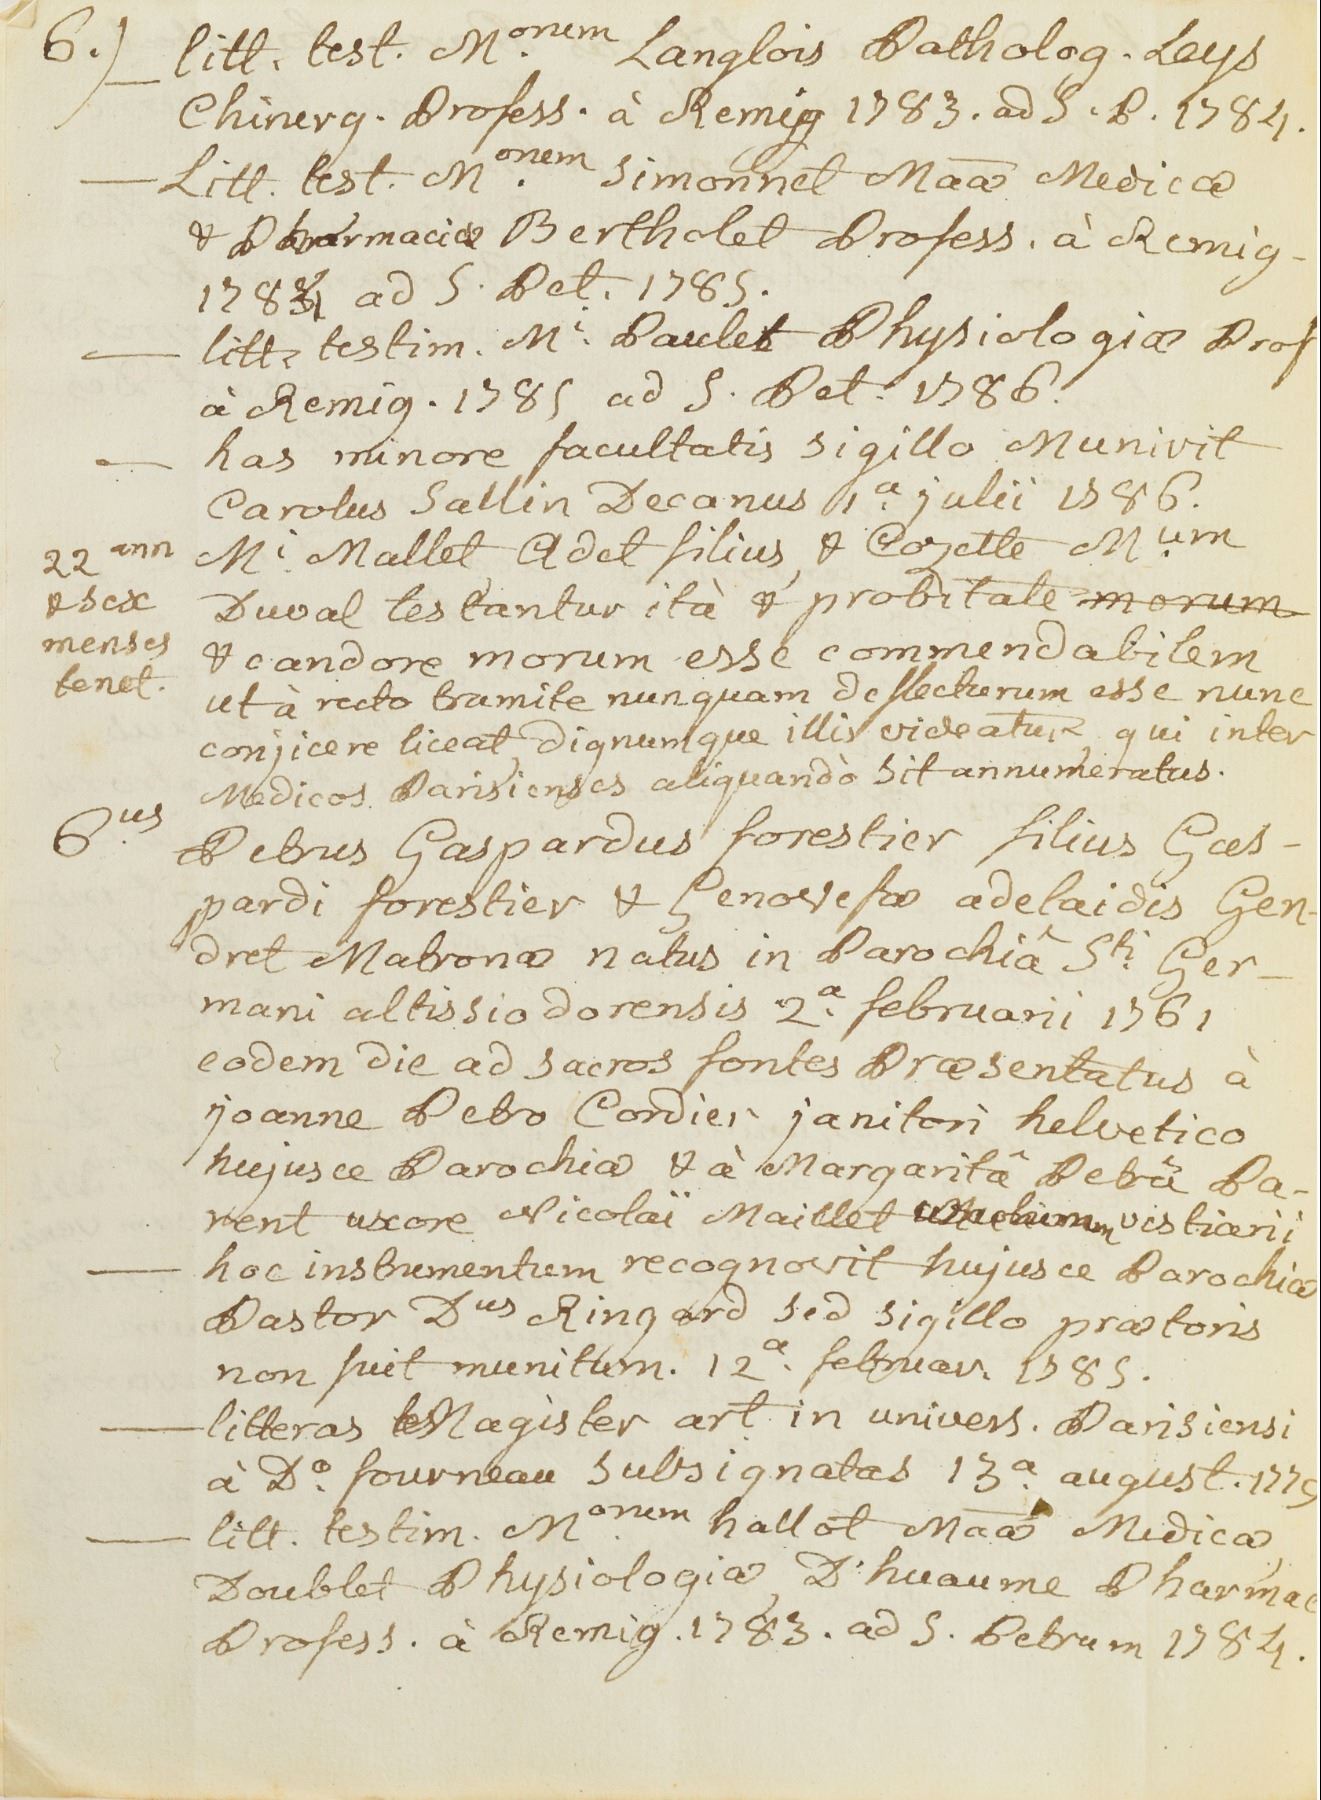 6.) — litt. test. M.onem Langlois Patholog. Leys
Chirurg. Profess. à Remig 1783. ad S. P. 1784.
— Litt. test. M.onem Simonnet Maæ Medicæ
& Pharmaciæ Bertholet Profess. à Remig-
1784 ad S. Pet. 1785.
— litt. testim. M.i Paulet Physiologiæ Prof
à Remig. 1785 ad S. Pet. 1786.
— has minore facultatis sigillo Munivit
Carolus Sallin Decanus 1.a julii 1786.
22 ann & sex menses tenet.
M.i Mallet, Adet filius, & Cozette M.um
Duval testantur ità & probitate morum
& candore morum esse commendabilem
ut à recto tramite nunquam deflecturum esse nunc
conjicere liceat, dignumque illis videatur, qui inter
Medicos Parisienses aliquandò sit annumeratus.
6.us Petrus Gaspardus forestier filius Gas-
pardi forestier & Genovefæ adelaidis Gen-
dret Matronæ natus in Parochiâ Sti. Ger-
mani altissiodorensis 2.a februarii 1761
eodem die ad sacros fontes Præsentatus à
joanne Petro Cordier janitori helvetico
hujusce Parochiæ & à Margaritâ Petrâ Pa-
rent uxore Nicolaï Maillet vestiarii
— hoc instrumentum recognovit hujusce Parochiæ
Pastor Dus Ringard sed sigillo prætoris
non fuit munitum. 12.a februar. 1785.
— litteras Magister art. in univers. Parisiensi
à D.o fourneau subsignatas 13.a august. 1779
— litt. testim. M.onem hallot Maæ Medicæ,
Doublet Physiologiæ, D'huaume Pharmac
Profess. à Remig. 1783. ad S. Petrum 1784.